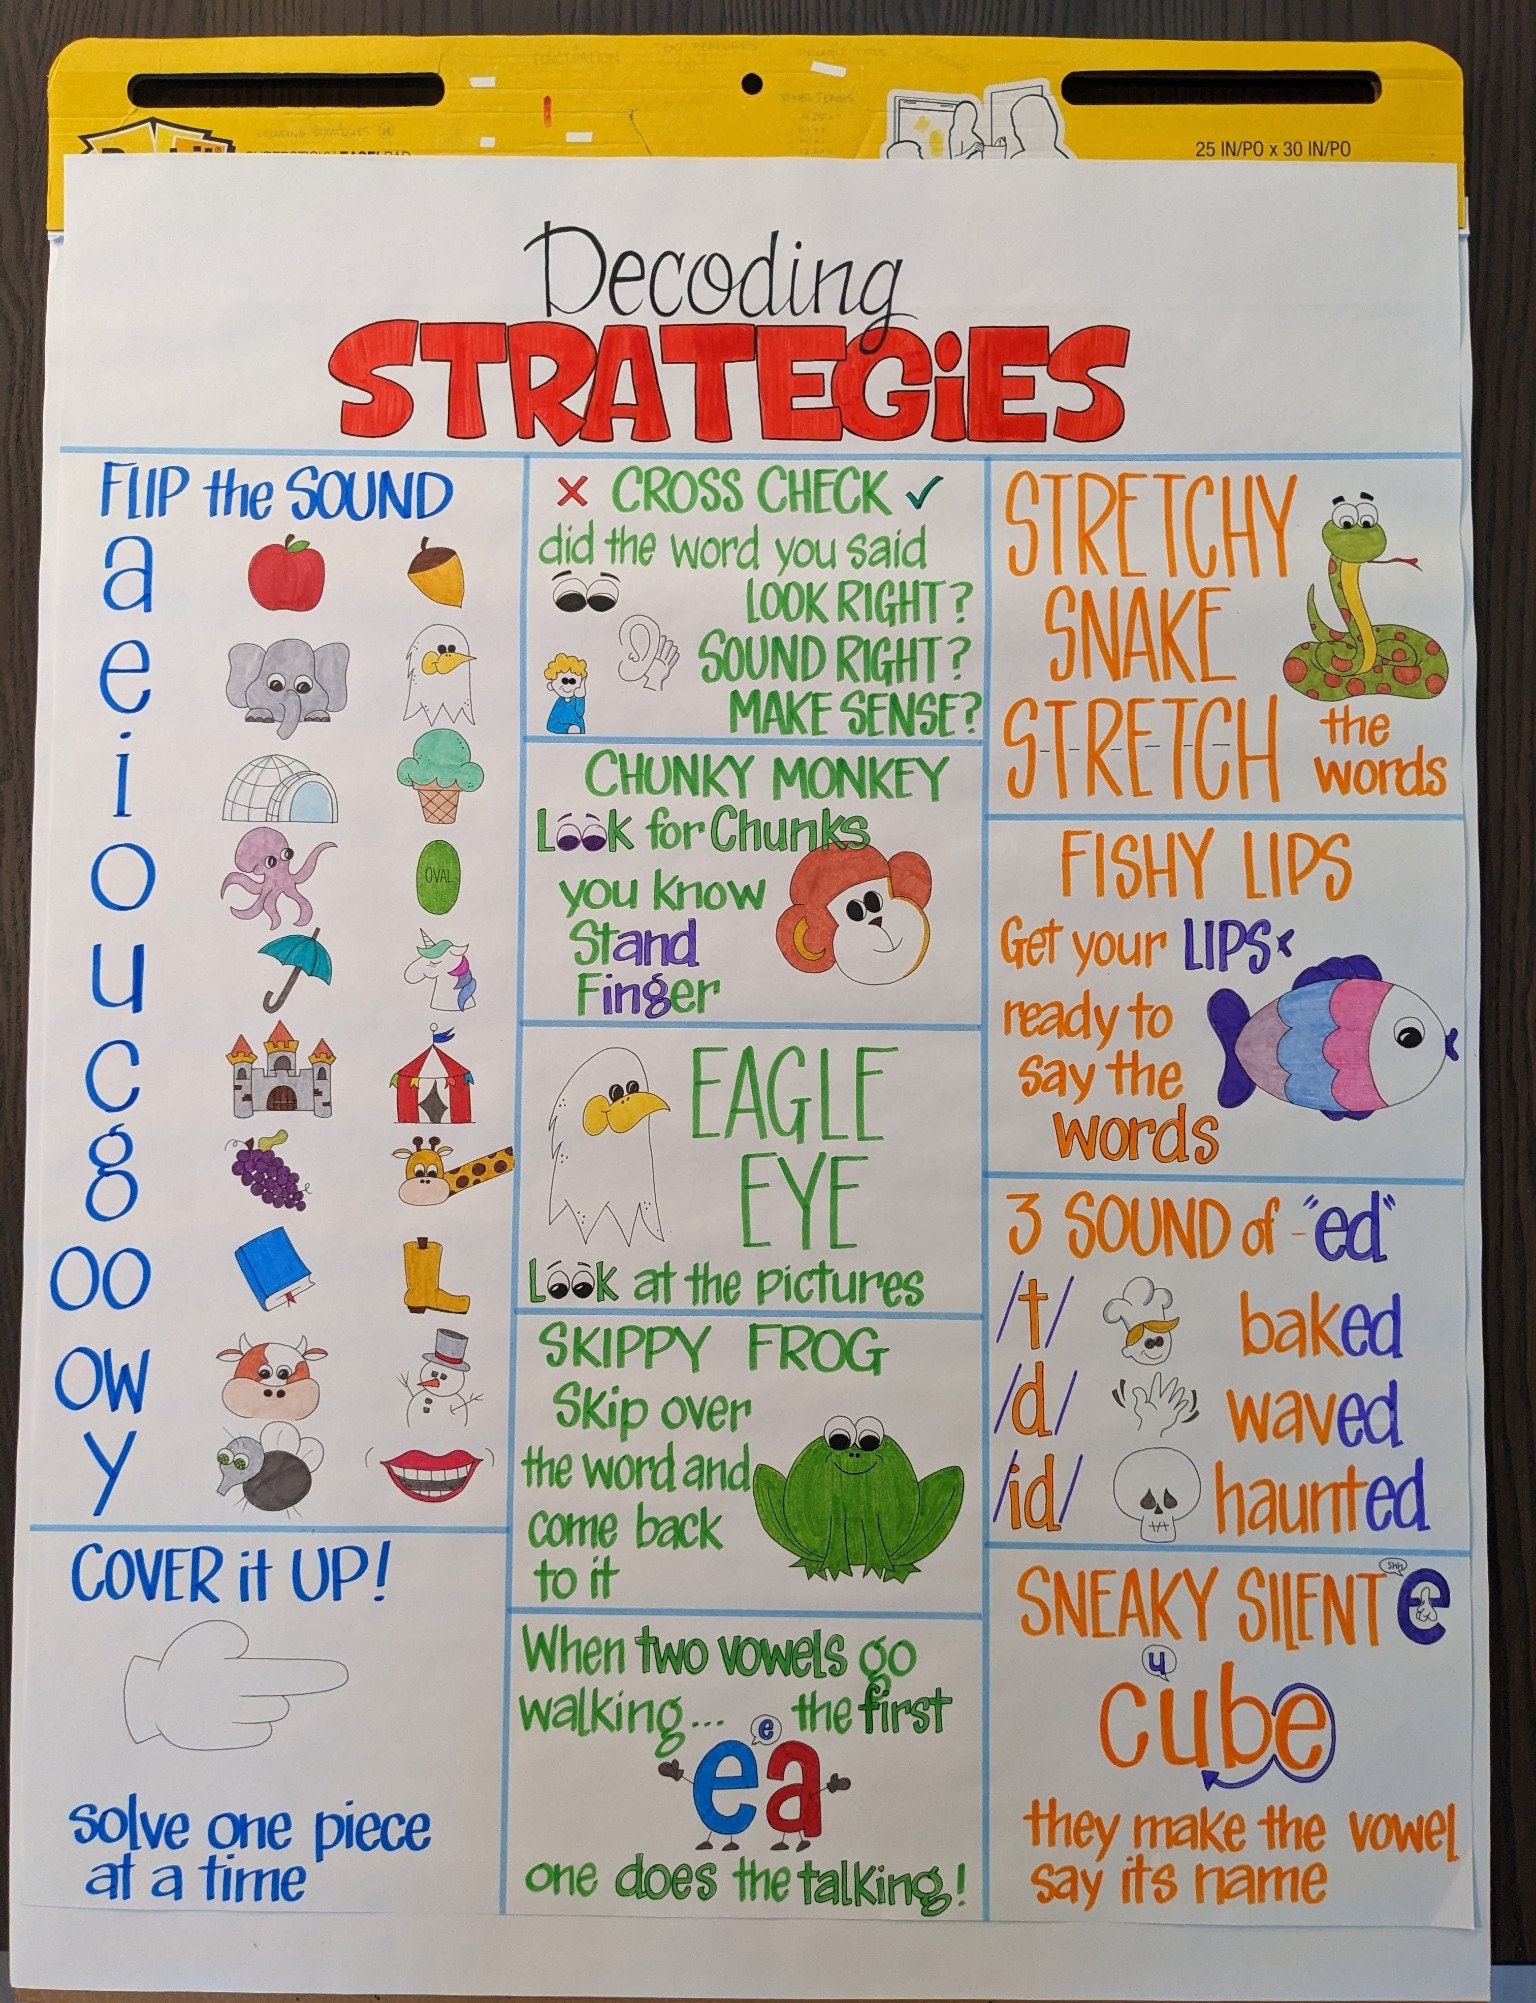 25 IN/PO x 30 IN/PO
Decoding
STRATEGiES
FLIP the SOUND
a
e
i
o
OVAL
u
c
g
oo
ow
y
COVER it UP!
solve one piece
at a time
X CROSS CHECK ✓
did the word you said
LOOK RIGHT?
SOUND RIGHT?
MAKE SENSE?
CHUNKY MONKEY
Look for Chunks
you know
Stand
Finger
EAGLE
EYE
Look at the pictures
SKIPPY FROG
Skip over
the word and
come back
to it
When two vowels go
walking... the first
e
ea
one does the talking!
STRETCHY
SNAKE
S-T-R-E-T-C-H the
words
FISHY LIPS
Get your LIPS
ready to
say the
words
3 SOUND of -"ed"
/t/ baked
/d/ waved
/id/ haunted
SNEAKY SILENT e
shh
u
cube
they make the vowel
say its name